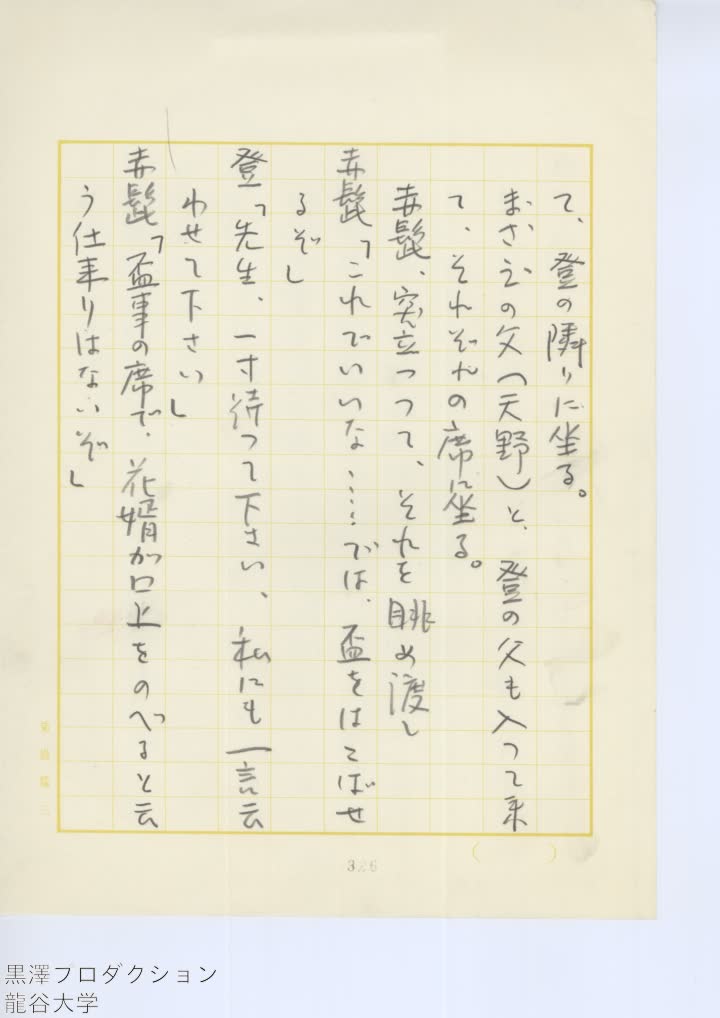 て、登の隣りに坐る。
まさゑの父（天野）と、登の父も入って来
て、それぞれの席に坐る。
赤髭、突立つて、それを眺め渡し
赤髭「これでいいな……では、盃をはこばせ
るぞ」
登「先生、一寸待つて下さい、私にも一言云
わせて下さい」
赤髭「盃事の席で、花婿が口上をのべると云
う仕来りはないぞ」
326
黒澤プロダクション
龍谷大学